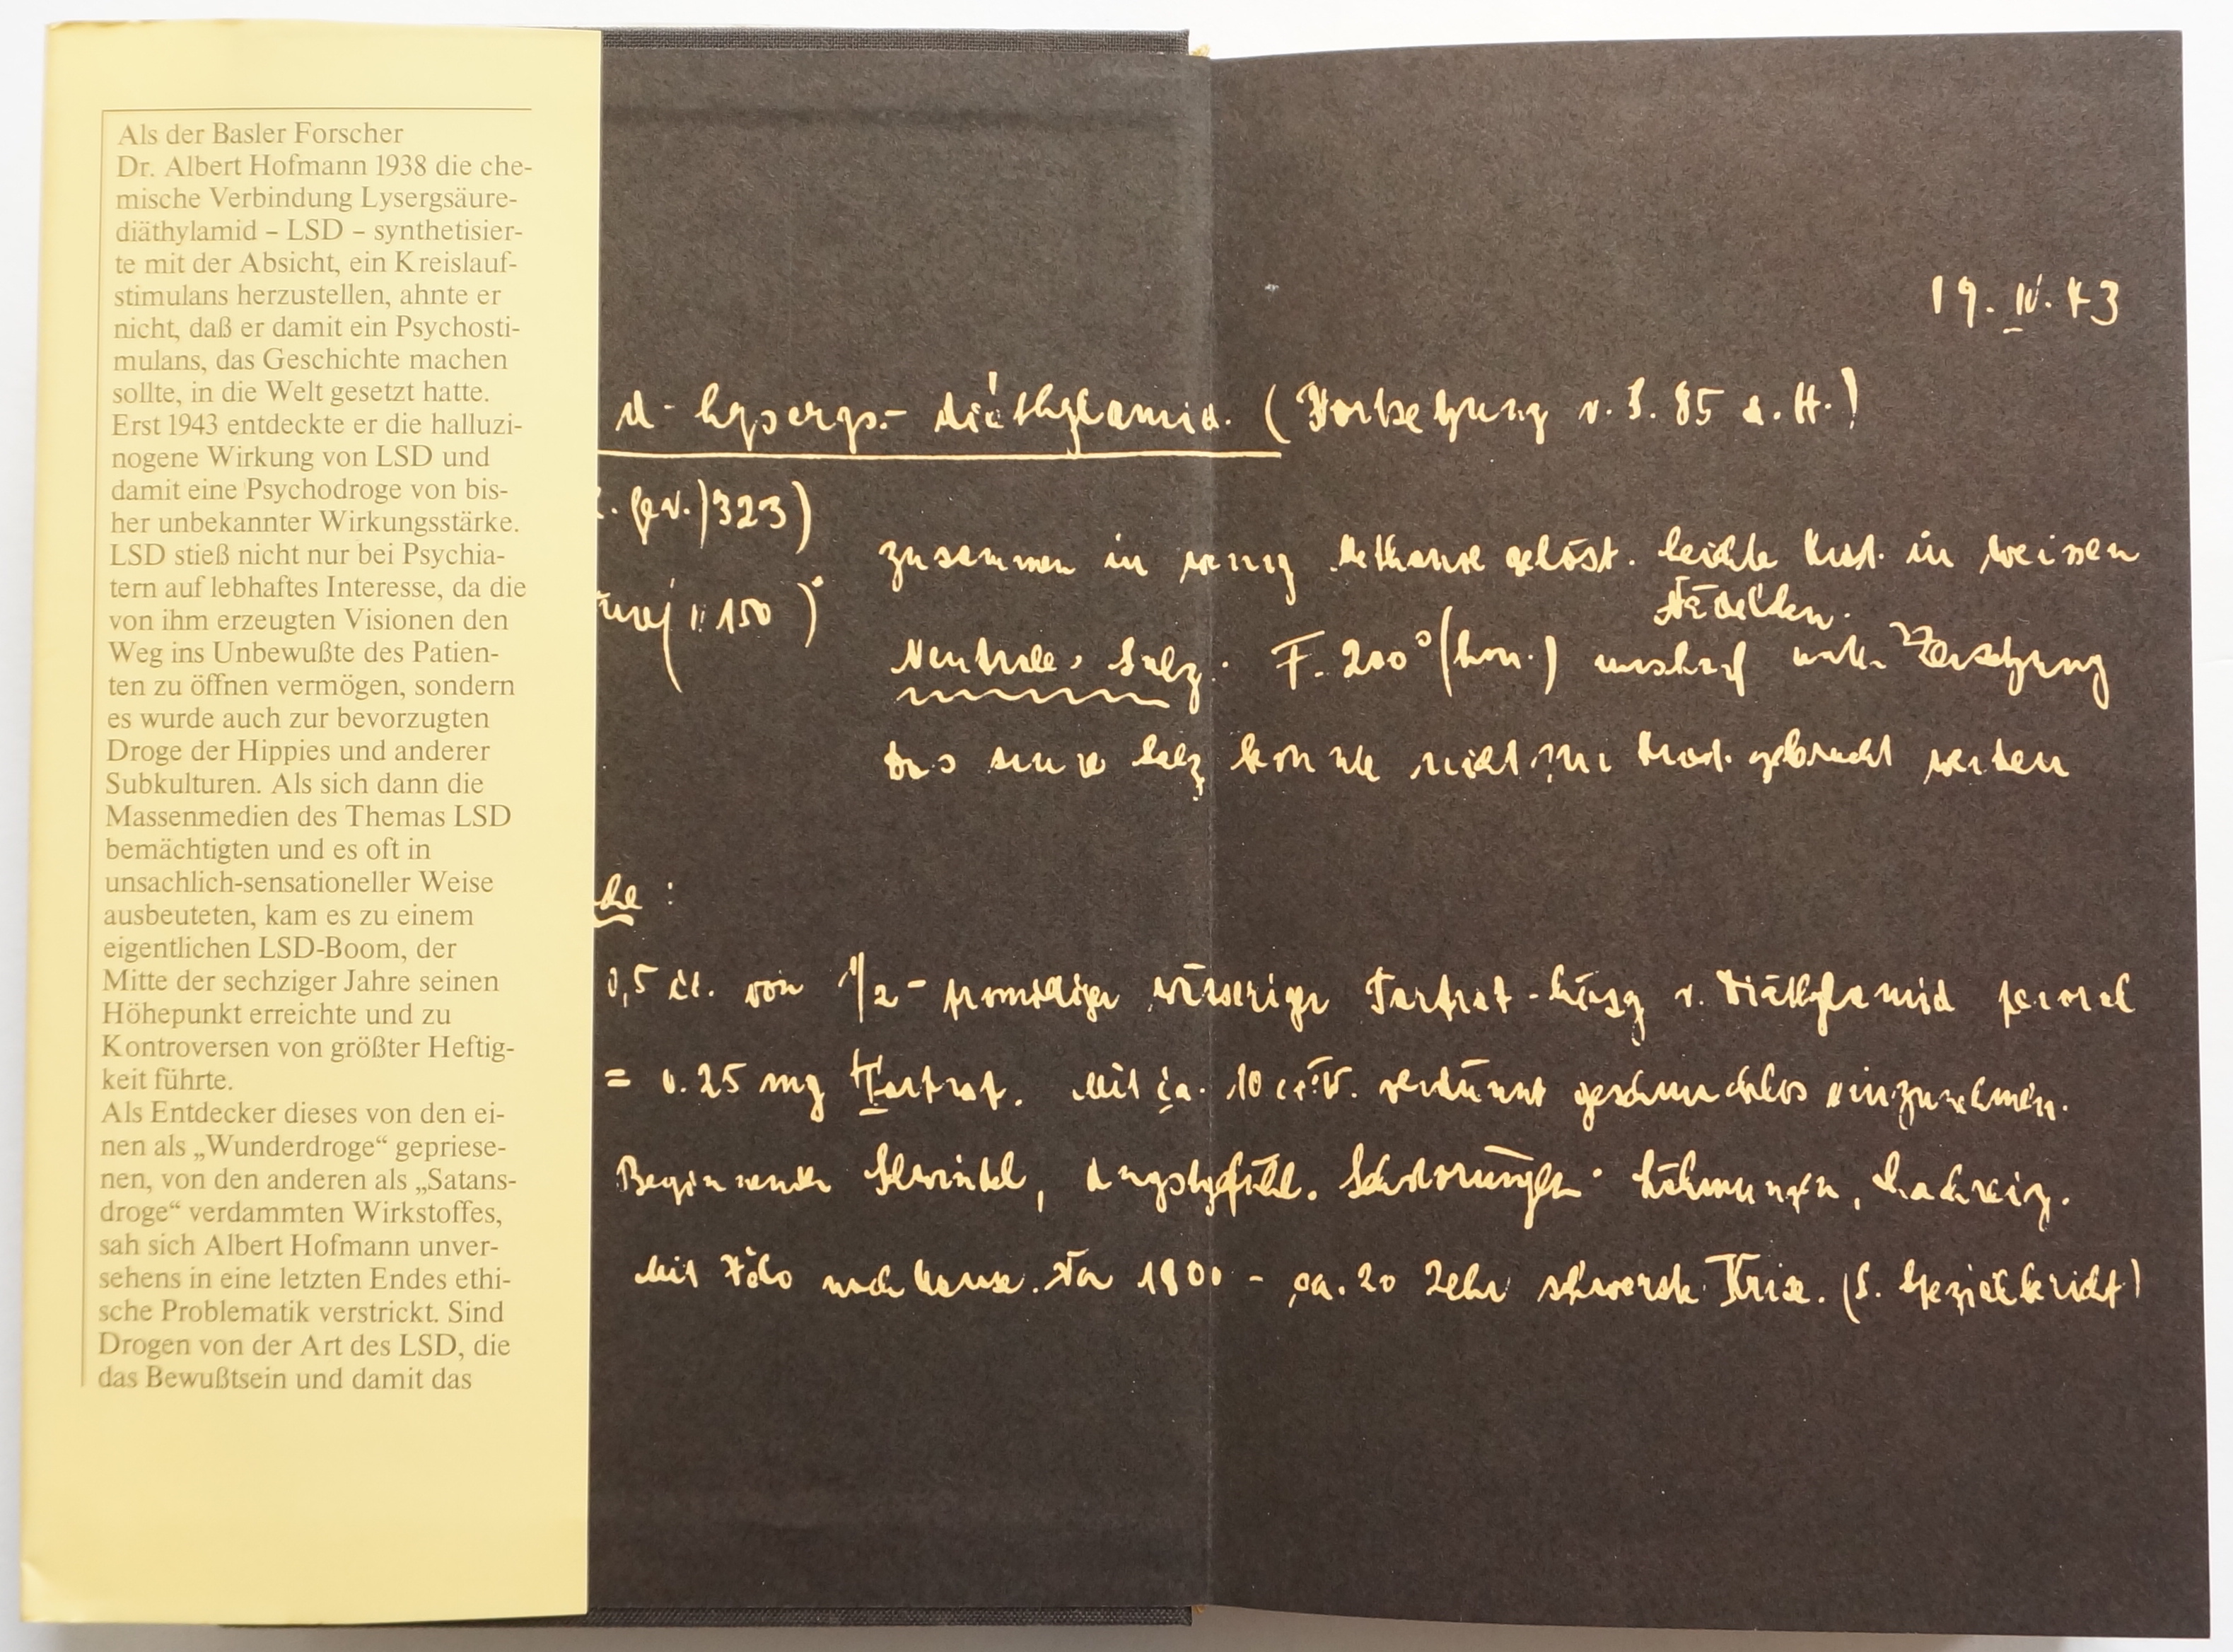 Als der Basler Forscher
Dr. Albert Hofmann 1938 die che-
mische Verbindung Lysergsäure-
diäthylamid – LSD – synthetisier-
te mit der Absicht, ein Kreislauf-
stimulans herzustellen, ahnte er
nicht, daß er damit ein Psychosti-
mulans, das Geschichte machen
sollte, in die Welt gesetzt hatte.
Erst 1943 entdeckte er die halluzi-
nogene Wirkung von LSD und
damit eine Psychodroge von bis-
her unbekannter Wirkungsstärke.
LSD stieß nicht nur bei Psychia-
tern auf lebhaftes Interesse, da die
von ihm erzeugten Visionen den
Weg ins Unbewußte des Patien-
ten zu öffnen vermögen, sondern
es wurde auch zur bevorzugten
Droge der Hippies und anderer
Subkulturen. Als sich dann die
Massenmedien des Themas LSD
bemächtigten und es oft in
unsachlich-sensationeller Weise
ausbeuteten, kam es zu einem
eigentlichen LSD-Boom, der
Mitte der sechziger Jahre seinen
Höhepunkt erreichte und zu
Kontroversen von größter Heftig-
keit führte.
Als Entdecker dieses von den ei-
nen als „Wunderdroge“ gepriese-
nen, von den anderen als „Satans-
droge“ verdammten Wirkstoffes,
sah sich Albert Hofmann unver-
sehens in eine letzten Endes ethi-
sche Problematik verstrickt. Sind
Drogen von der Art des LSD, die
das Bewußtsein und damit das
19. IV. 43
d-Lysergs.-diäthylamid. (Fortsetzung v. S. 85 d. H.)
323)
zusammen in wenig Methanol gelöst. Leichte Krist. in weissen
Nädelchen.
150)
Neutrales Salz. F. 200° (korr.) unscharf unter Zersetzung
Das saure Salz konnte nicht zur Krist. gebracht werden
0,5 cc. von 1/2-promilliger wässeriger Tartrat-Lösung v. Diäthylamid peroral
= 0.25 mg Tartrat. Mit ca. 10 cc W. verdünnt geschmacklos einzunehmen.
Beginnender Schwindel, Angstgefühl. Sehstörungen. Lähmungen, Lachreiz.
Mit Velo nach Hause. Von 1800 - ca. 20 Uhr schwerste Krise. (S. Spezialbericht)